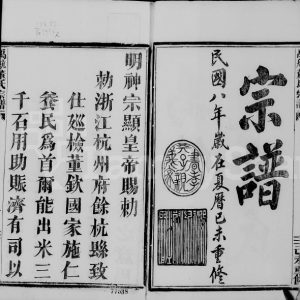 宗譜
民國八年歲在夏曆己未重修
明神宗顯皇帝賜勅
勅浙江杭州府餘杭縣致
仕廵檢董欽國家施仁
養民爲首爾能出米三
千石用助賑濟有司以